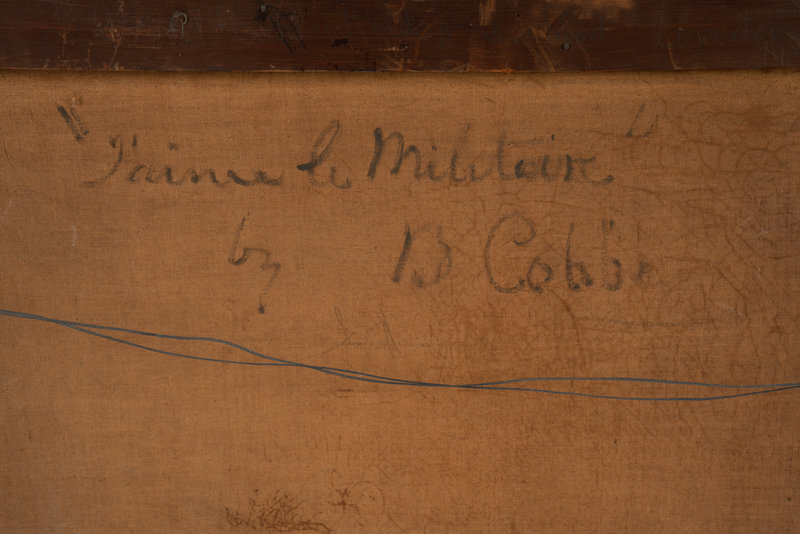 "J'aime le Militaire"
by B Cobbe